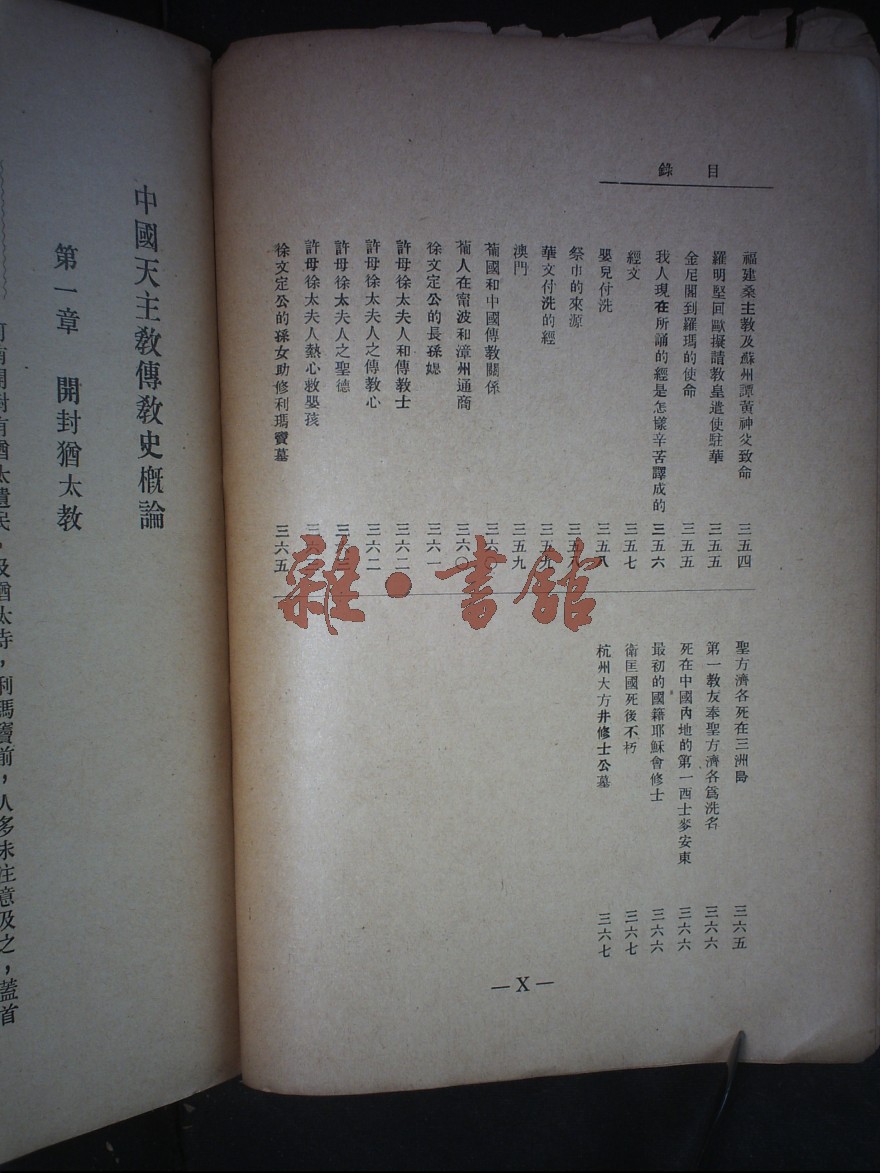 目錄
福建桑主教及蘇州譚黃神父致命 三五四
羅明堅回歐擬請教皇遣使駐華 三五五
金尼閣到羅瑪的使命 三五五
我人現在所誦的經是怎樣辛苦譯成的 三五六
經文 三五七
嬰兒付洗 三五八
祭巾的來源 三五八
華文付洗的經 三五九
澳門 三五九
葡國和中國傳教關係 三六〇
葡人在甯波和漳州通商 三六〇
徐文定公的長孫媳 三六一
許母徐太夫人和傳教士 三六二
許母徐太夫人之傳教心 三六二
許母徐太夫人之聖德 三六
許母徐太夫人熱心救嬰孩 三六
徐文定公的孫女助修利瑪竇墓 三六五
聖方濟各死在三洲島 三六五
第一教友奉聖方濟各爲洗名 三六六
死在中國內地的第一西士麥安東 三六六
最初的國籍耶穌會修士 三六六
衛匡國死後不朽 三六七
杭州大方井修士公墓 三六七
—X—
雜·書館
中國天主敎傳敎史概論
第一章 開封猶太教
河南開封有猶太遺民，及猶太寺，利瑪竇前，人多未注意及之，蓋首